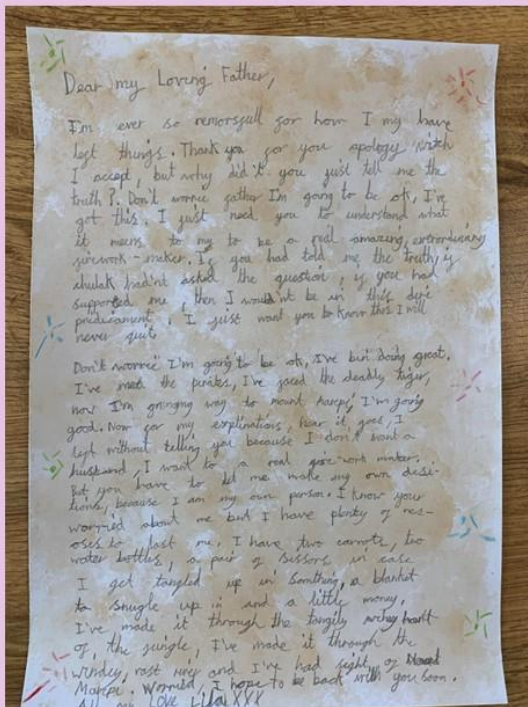 Dear my Loving Father,
I'm ever so remorsfull for how I my have
left things. Thank you for you apology witch
I accept, but why did't you just tell me the
truth?. Don't worrie father I'm going to be ok, I've
got this. I just need you to understand what
it means to my to be a real amazing, extrordinary
firework-maker. If you had told me the truth, if
chulak hadn't asked the question, if you had
supported me, then I wouldn't be in this dire
predicament. I just want you to know this I will
never quit.
Don't worrie I'm going to be ok, I've bin doing great.
I've met the pirates, I've faced the deadly tiger,
now I'm way to mount I'm going
good. Now for my explinations, hear it goes, I
left without telling you because I don't want a
husband, I want to a real maker.
But you have to let me make my own desi-
tions, because I am my own person. I know your
worried about me but I have plenty of
to last me. I have two carrots, two
water bottles, a pair of sissors in case
I get tangled up in somthing, a blanket
to snugle up in and a little money.
I've made it through the
of, the jungle, I've made it through the
windey, river and I've had sight of
I hope to be back with you soon.
All my Love Lila XXX